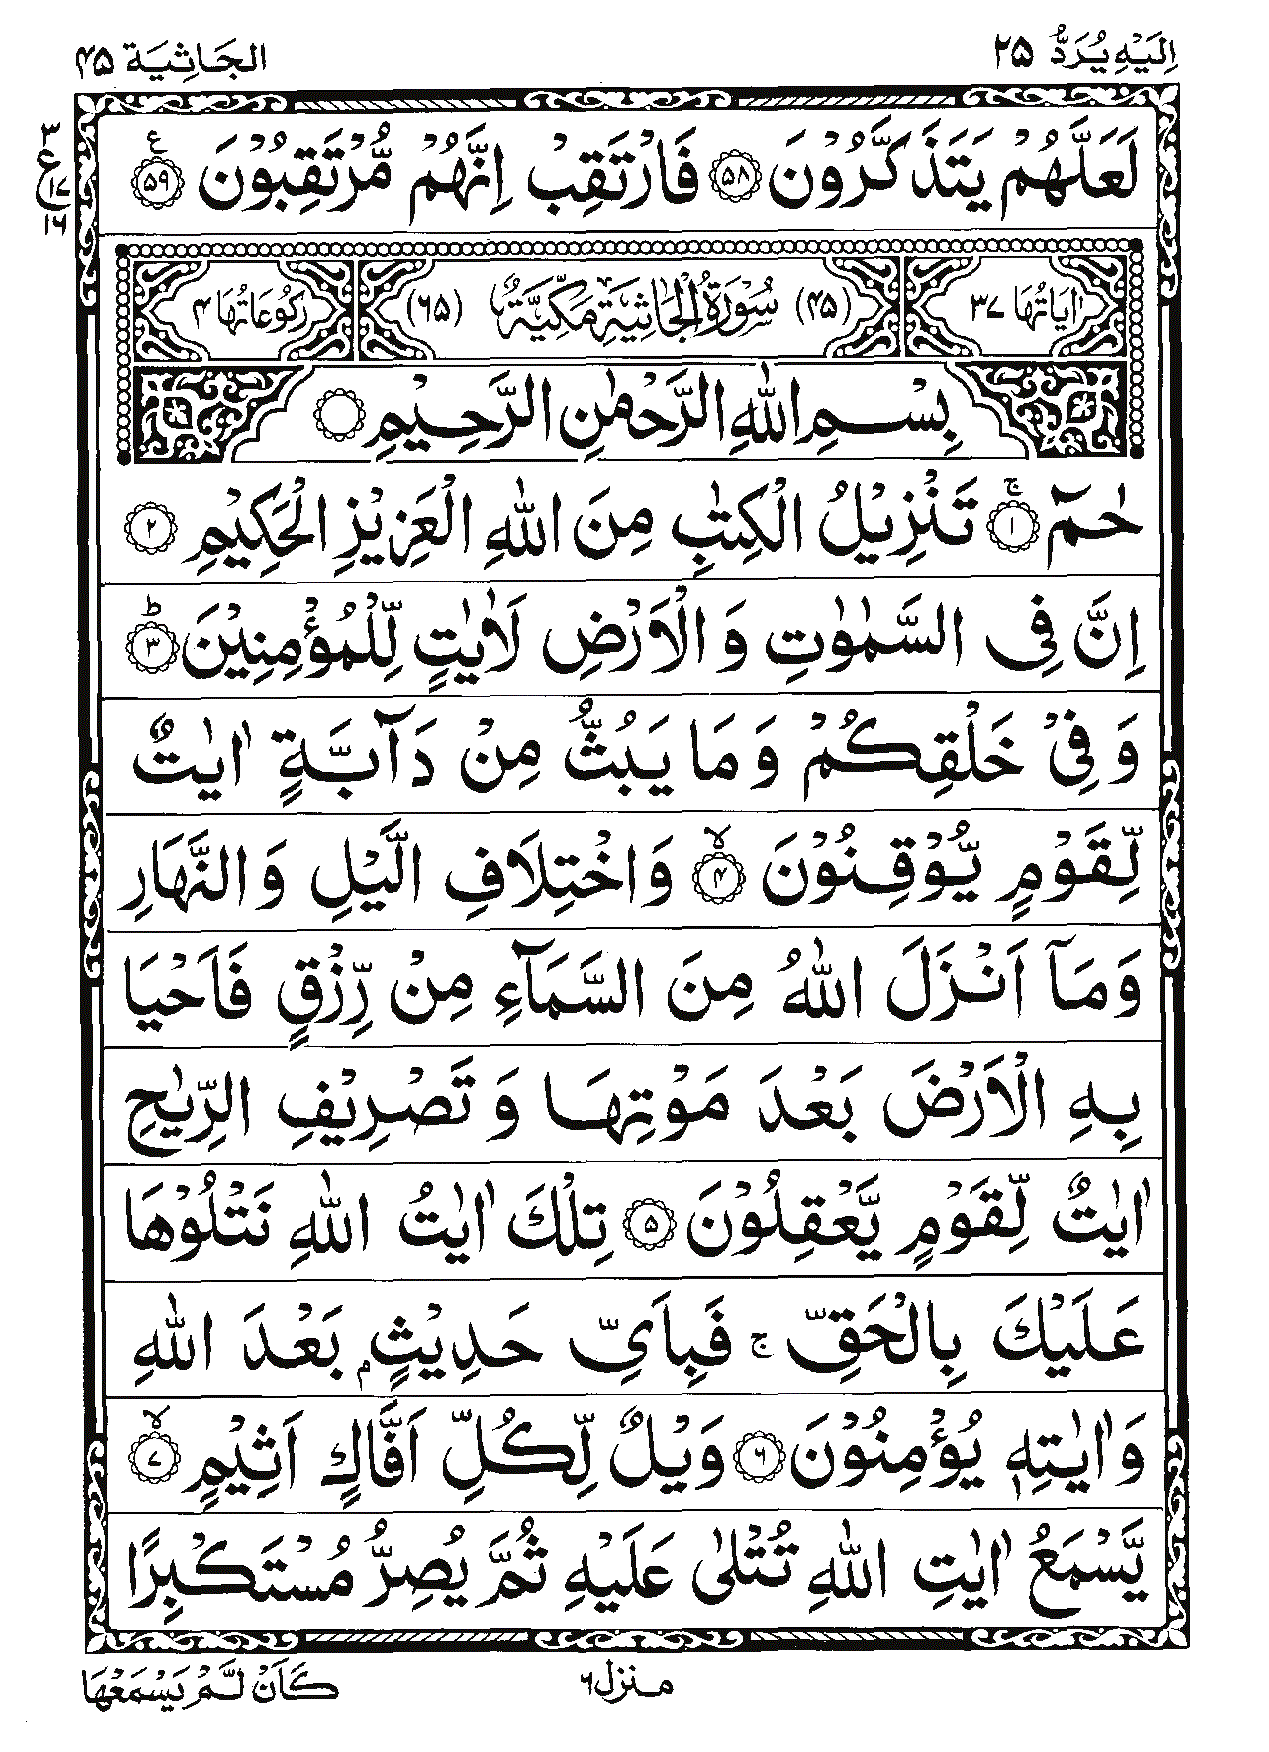 اِلَيْهِ يُرَدُّ ۲۵ الجَاثِيَة ۴۵
لَعَلَّهُمْ يَتَذَكَّرُوْنَ ۵۸ فَارْتَقِبْ اِنَّهُمْ مُّرْتَقِبُوْنَ ۵۹ ع
۳ ع ۱۷ ۱۶
اٰيَاتُهَا ۳۷ (۴۵) سُوْرَةُ الْجَاثِيَةِ مَكِّيَّةٌ (۶۵) رُكُوْعَاتُهَا ۴
بِسْمِ اللّٰهِ الرَّحْمٰنِ الرَّحِيْمِ
حٰمٓ ۚ ۱ تَنْزِيْلُ الْكِتٰبِ مِنَ اللّٰهِ الْعَزِيْزِ الْحَكِيْمِ ۲
اِنَّ فِى السَّمٰوٰتِ وَ الْاَرْضِ لَاٰيٰتٍ لِّلْمُؤْمِنِيْنَ ؕ ۳
وَ فِيْ خَلْقِكُمْ وَ مَا يَبُثُّ مِنْ دَآبَّةٍ اٰيٰتٌ
لِّقَوْمٍ يُّوْقِنُوْنَ ۙ ۴ وَ اخْتِلَافِ الَّيْلِ وَ النَّهَارِ
وَمَآ اَنْزَلَ اللّٰهُ مِنَ السَّمَآءِ مِنْ رِّزْقٍ فَاَحْيَا
بِهِ الْاَرْضَ بَعْدَ مَوْتِهَا وَ تَصْرِيْفِ الرِّيٰحِ
اٰيٰتٌ لِّقَوْمٍ يَّعْقِلُوْنَ ۵ تِلْكَ اٰيٰتُ اللّٰهِ نَتْلُوْهَا
عَلَيْكَ بِالْحَقِّ ۚ فَبِاَيِّ حَدِيْثٍۭ بَعْدَ اللّٰهِ
وَاٰيٰتِهٖ يُؤْمِنُوْنَ ۶ وَيْلٌ لِّكُلِّ اَفَّاكٍ اَثِيْمٍ ۙ ۷
يَّسْمَعُ اٰيٰتِ اللّٰهِ تُتْلٰى عَلَيْهِ ثُمَّ يُصِرُّ مُسْتَكْبِرًا
منزل ۶
كَاَنْ لَّمْ يَسْمَعْهَا